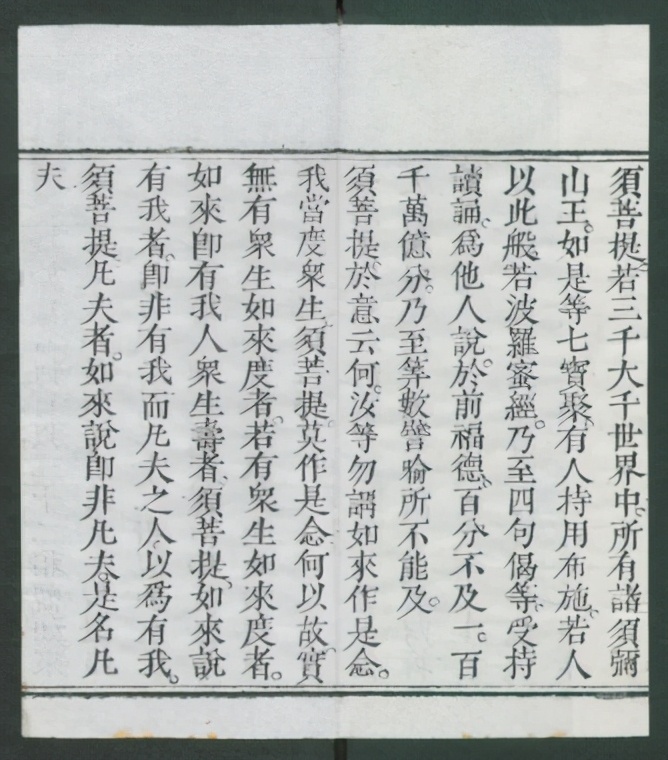 須菩提。若三千大千世界中。所有諸須彌
山王。如是等七寶聚。有人持用布施。若人
以此般若波羅蜜經。乃至四句偈等。受持
讀誦。爲他人說。於前福德。百分不及一。百
千萬億分。乃至筭數譬喻所不能及。
須菩提。於意云何。汝等勿謂如來作是念。
我當度衆生。須菩提。莫作是念。何以故。實
無有衆生如來度者。若有衆生如來度者。
如來卽有我人衆生壽者。須菩提。如來說
有我者。卽非有我。而凡夫之人。以爲有我。
須菩提。凡夫者。如來說卽非凡夫。是名凡
夫